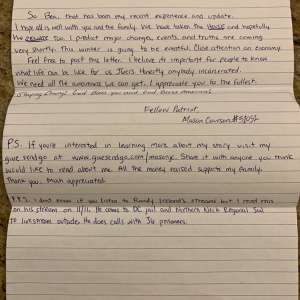 So Ben, that has been my recent experience and update.
I hope all is well with you and the family. We have taken the HOUSE and hopefully
the SENATE too. I predict major changes, events, and truths are coming
very shortly. This winter is going to be eventful. Close attention on economy.
Feel free to post this letter. I believe it's important for people to know
what life can be like for us J6ers. Honestly anybody incarcerated.
We need all the awareness we can get. I appreciate you to the fullest.
Staying Strong! God bless you and God bless America!
Fellow Patriot,
Mason Courson
P.S. If you're interested in learning more about my story visit my
give send go at www.givesendgo.com/masonjc. Share it with anyone you think
would like to read about me. All the money raised supports my family.
Thank you. Much appreciated.
P.P.S. I don't know if you listen to Randy Ireland's streams but I read mine
on his stream on 11/11. He comes to DC jail and Northern Neck Regional Jail
to livestream outside. He does calls with J6 prisoners.